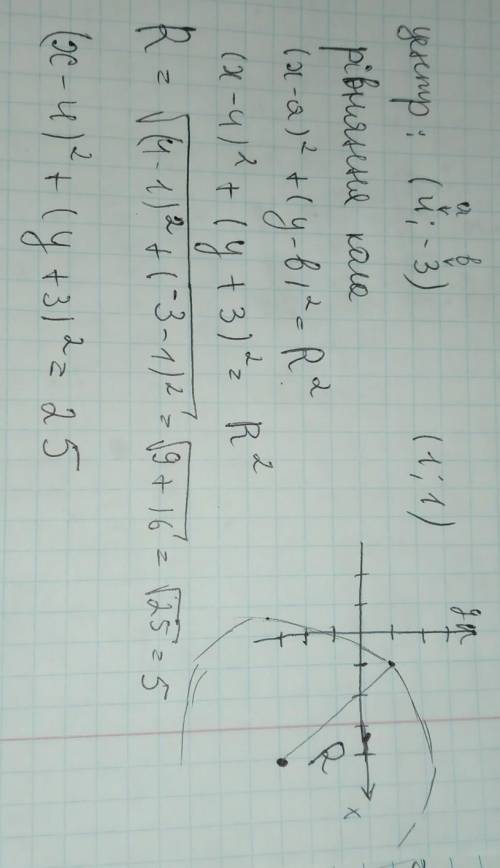 центр: (4; -3) (1; 1)
а в
рівняння кола
(x-a)² + (y-в)² = R²
(x-4)² + (y+3)² = R²
R = √(4-1)² + (-3-1)² = √9+16 = √25 = 5
(x-4)² + (y+3)² = 25
y
R
x